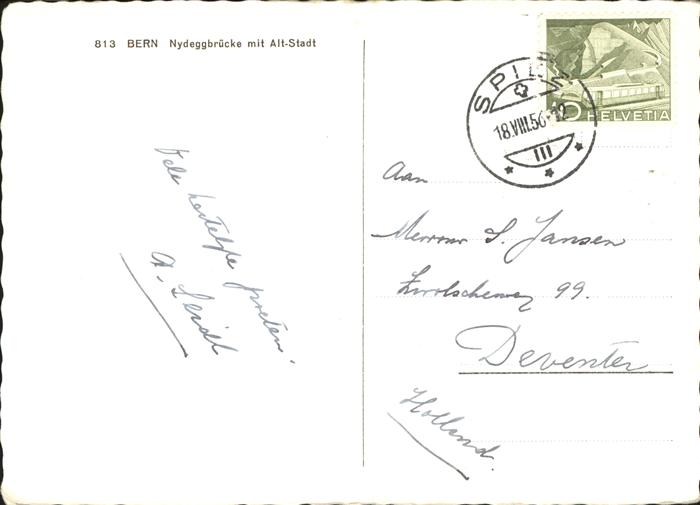 813 BERN Nydeggbrücke mit Alt-Stadt
Vele hartelijke groeten.
A. Seidel
SPIEZ
18.VIII.56-12
III
HELVETIA
Aan
Mevrouw S. Jansen
Zwolscheweg 99.
Deventer
Holland.